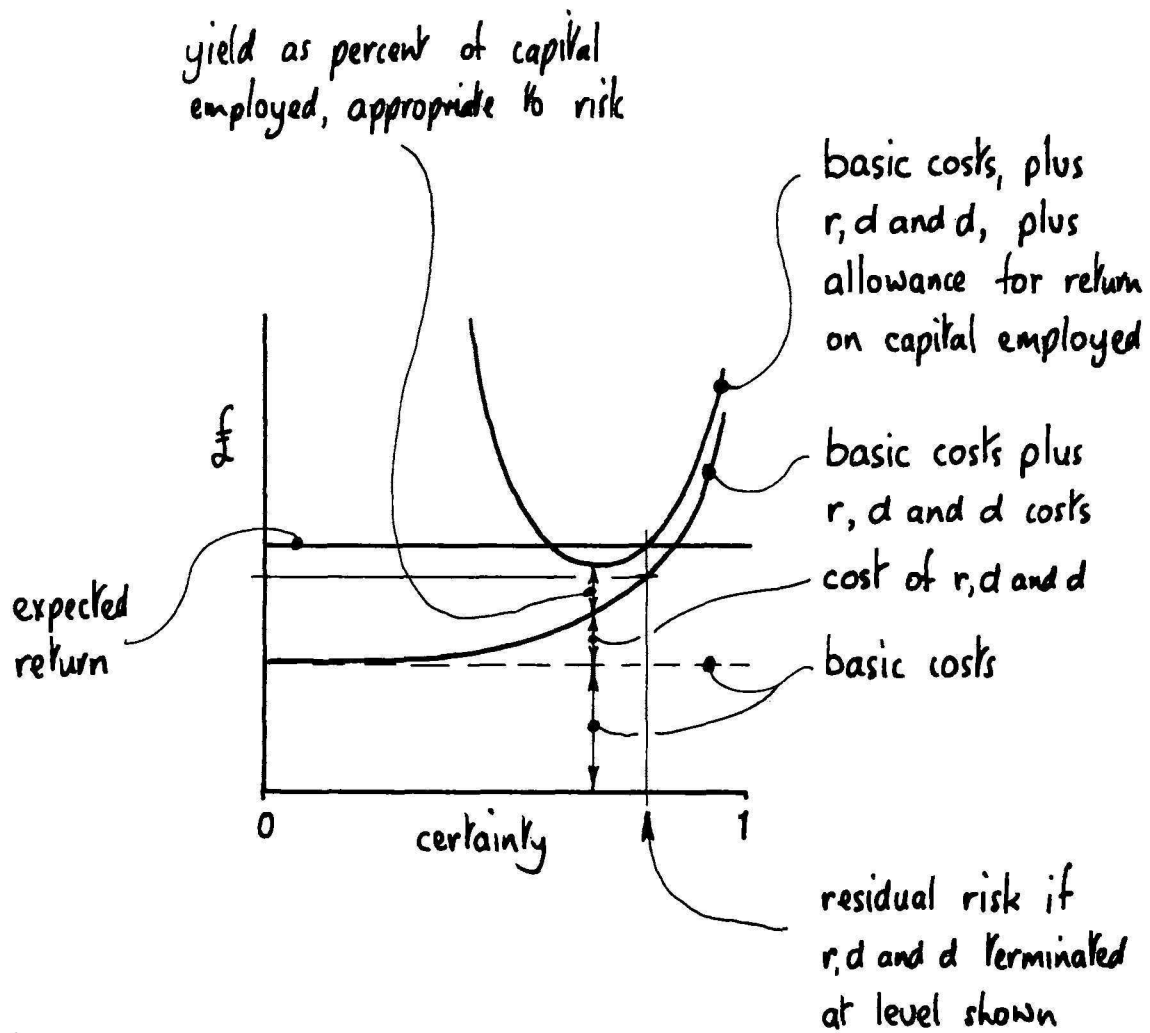 yield as percent of capital
employed, appropriate to risk
basic costs, plus
r, d and d, plus
allowance for return
on capital employed
£
basic costs plus
r, d and d costs
cost of r, d and d
expected
return
basic costs
0
certainty
1
residual risk if
r, d and d terminated
at level shown